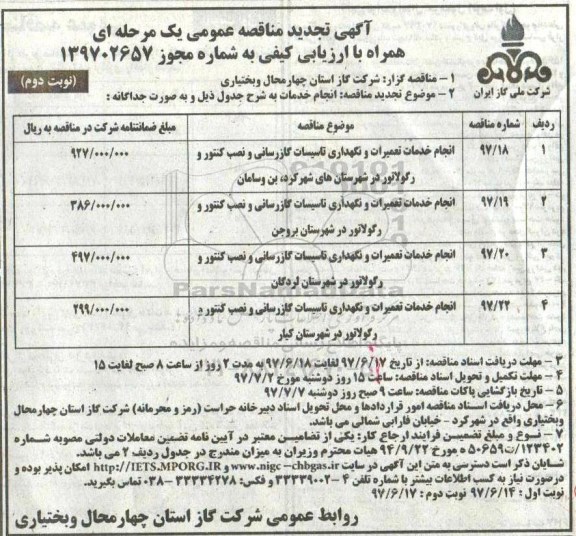 آگهی تجدید مناقصه عمومی یک مرحله ای
همراه با ارزیابی کیفی به شماره مجوز ۱۳۹۷۰۲۶۵۷
شرکت ملی گاز ایران
(نوبت دوم)
۱ - مناقصه گزار: شرکت گاز استان چهارمحال وبختیاری
۲ - موضوع تجدید مناقصه: انجام خدمات به شرح جدول ذیل و به صورت جداگانه :
ردیف شماره مناقصه موضوع مناقصه مبلغ ضمانتنامه شرکت در مناقصه به ریال
۱ ۹۷/۱۸ انجام خدمات تعمیرات و نگهداری تاسیسات گازرسانی و نصب کنتور و ۹۲۷/۰۰۰/۰۰۰
رگولاتور در شهرستان های شهرکرد، بن وسامان
۲ ۹۷/۱۹ انجام خدمات تعمیرات و نگهداری تاسیسات گازرسانی و نصب کنتور و ۳۸۶/۰۰۰/۰۰۰
رگولاتور در شهرستان بروجن
۳ ۹۷/۲۰ انجام خدمات تعمیرات و نگهداری تاسیسات گازرسانی و نصب کنتور و ۴۹۷/۰۰۰/۰۰۰
رگولاتور در شهرستان لردگان
۴ ۹۷/۲۲ انجام خدمات تعمیرات و نگهداری تاسیسات گازرسانی و نصب کنتور و ۲۹۹/۰۰۰/۰۰۰
رگولاتور در شهرستان کیار
۳ - مهلت دریافت اسناد مناقصه: از تاریخ ۹۷/۶/۱۷ لغایت ۹۷/۶/۱۸ به مدت ۲ روز از ساعت ۸ صبح لغایت ۱۵
۴ - مهلت تکمیل و تحویل اسناد مناقصه: ساعت ۱۵ روز دوشنبه مورخ ۹۷/۷/۲
۵ - تاریخ بازگشایی پاکات مناقصه: ساعت ۹ صبح روز دوشنبه ۹۷/۷/۷
۶ - محل دریافت اسناد مناقصه امور قراردادها و محل تحویل اسناد دبیرخانه حراست (رمز و محرمانه) شرکت گاز استان چهارمحال
وبختیاری واقع در شهرکرد - خیابان فارابی شمالی می باشد.
۷ - نوع و مبلغ تضمین فرایند ارجاع کار: یکی از تضامین معتبر در آیین نامه تضمین معاملات دولتی مصوبه شماره
۱۲۳۴۰۲/ت۵۰۶۵۹ه مورخ ۹۴/۹/۲۲ هیات محترم وزیران به میزان مندرج در جدول ردیف ۲ می باشد.
شایان ذکر است دسترسی به متن این آگهی در سایت www.nigc-chbgas.ir و http://IETS.MPORG.IR امکان پذیر بوده و
درصورت نیاز به کسب اطلاعات بیشتر با شماره تلفن ۴ - ۳۳۳۳۹۰۰۲ و فکس: ۳۳۳۳۴۲۷۸ - ۰۳۸ تماس بگیرید.
نوبت اول : ۹۷/۶/۱۴ نوبت دوم : ۹۷/۶/۱۷
روابط عمومی شرکت گاز استان چهارمحال وبختیاری